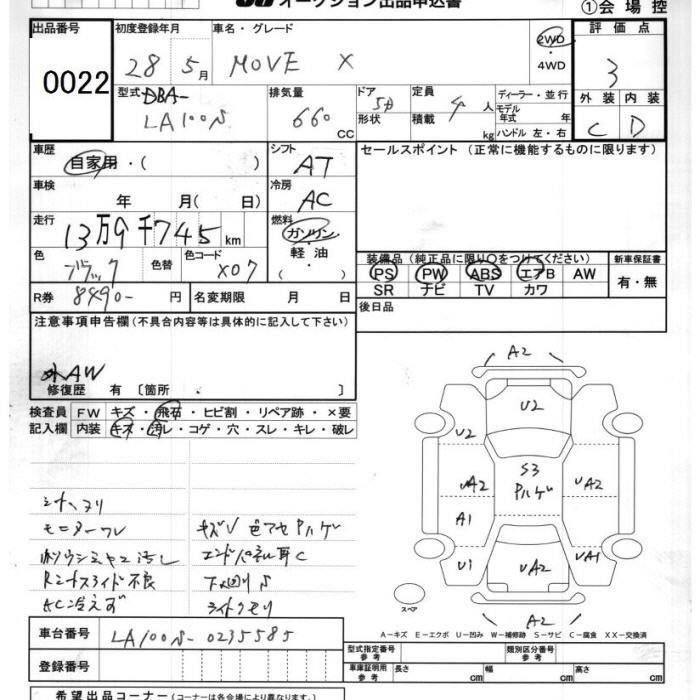 オークション出品申込書
①会場控
出品番号 初度登録年月 車名・グレード 2WD ・ 4WD 評価点
0022 28 5月 MOVE X 3
型式 DBA- LA100S 排気量 660 CC ドア形状 5D 定員 4人 積載 kg ディーラー・並行 モデル年式 年 ハンドル 左・右 外装 内装
C D
車歴 自家用・( ) シフト AT セールスポイント (正常に機能するものに限ります)
車検 年 月( 日) 冷房 AC
走行 13万9千745 km 燃料 ガソリン・軽油・( )
色 ブラック 色替 色コード X07 装備品 (純正品に限り○をつけてください) 新車保証書
PS PW ABS エアB AW 有・無
SR ナビ TV カワ
R券 8490- 円 名変期限 月 日 後日品
注意事項申告欄 (不具合内容等は具体的に記入して下さい)
外AW
修復歴 有 〔箇所 . 〕
検査員 FW キズ・飛石・ヒビ割・リペア跡・×要
記入欄 内装 キズ・汚レ・コゲ・穴・スレ・キレ・破レ
A2
U2
U2
S3
Pハゲ
A2 UA2
A1
U1 UA2 UA1
A2
スペア
モニターワレ キズV 色アセ Pハゲ
エンドパネル耳C
Rシートスライド不良 下廻りS
AC冷えず ライトクモリ
A－キズ E－エクボ U－凹み W－補修跡 S－サビ C－腐食 XX－交換済
車台番号 LA100S-0235585 型式指定番号 参考 類別区分番号 参考
登録番号 車庫証明用 参考 長さ cm 幅 cm 高さ cm
希望出品コーナー (コーナーは各会場により異なります。)